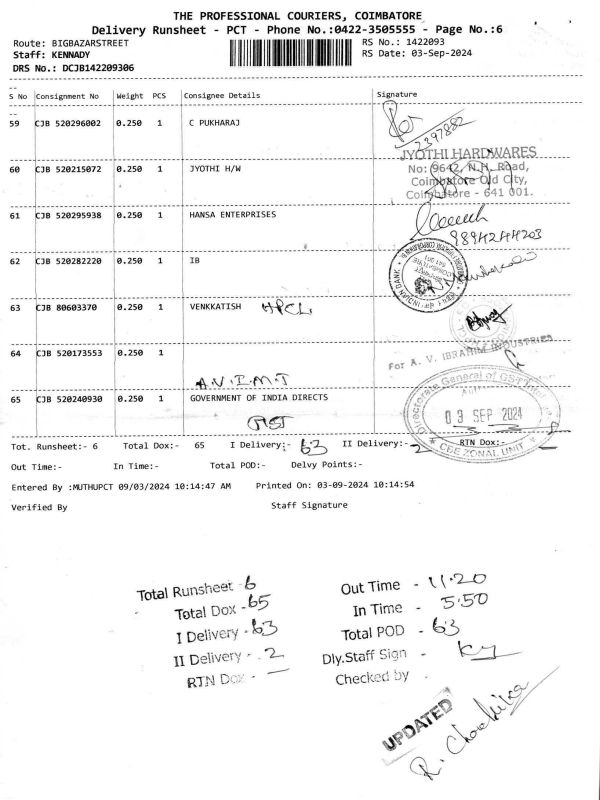 THE PROFESSIONAL COURIERS, COIMBATORE
Delivery Runsheet - PCT - Phone No.:0422-3505555 - Page No.:6
Route: BIGBAZARSTREET RS No.: 1422093
Staff: KENNADY RS Date: 03-Sep-2024
DRS No.: DCJB142209306
S No Consignment No Weight PCS Consignee Details Signature
59 CJB 520296002 0.250 1 C PUKHARAJ
2397882
JYOTHI HARDWARES
60 CJB 520215072 0.250 1 JYOTHI H/W No: 9642, N.H. Road,
Coimbatore Old City,
Coimbatore - 641 001.
61 CJB 520295938 0.250 1 HANSA ENTERPRISES
9894244203
62 CJB 520282220 0.250 1 IB
INDIAN BANK
63 CJB 80603370 0.250 1 VENKKATISH HPCL
For A. V. IBRAHIM INDUSTRIES
64 CJB 520173553 0.250 1
A.V.I.M.T
65 CJB 520240930 0.250 1 GOVERNMENT OF INDIA DIRECTS
Directorate General of GST
03 SEP 2024
CBE ZONAL UNIT
GST
Tot. Runsheet:- 6 Total Dox:- 65 I Delivery:- 63 II Delivery:- 2 RTN Dox:-
Out Time:- In Time:- Total POD:- Delvy Points:-
Entered By :MUTHUPCT 09/03/2024 10:14:47 AM Printed On: 03-09-2024 10:14:54
Verified By Staff Signature
Total Runsheet - 6 Out Time - 11.20
Total Dox - 65 In Time - 5.50
I Delivery - 63 Total POD - 63
II Delivery - 2 Dly.Staff Sign - Ky
RTN Dox - — Checked by -
UPDATED